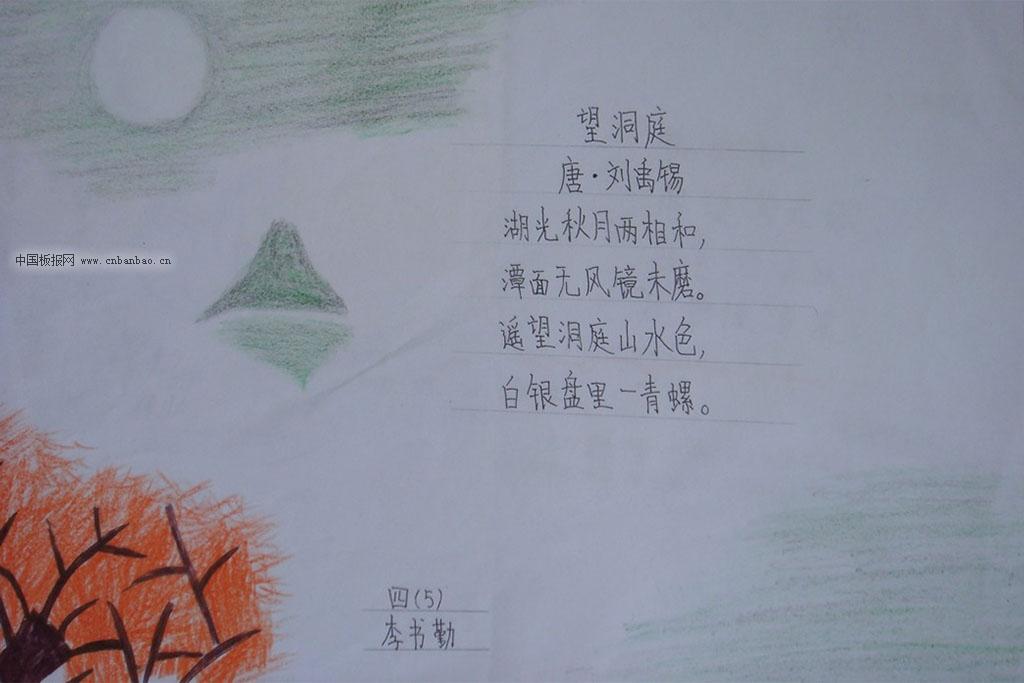 望洞庭
唐·刘禹锡
湖光秋月两相和，
潭面无风镜未磨。
遥望洞庭山水色，
白银盘里一青螺。
中国板报网 www.cnbanbao.cn
四(5)
李书勤